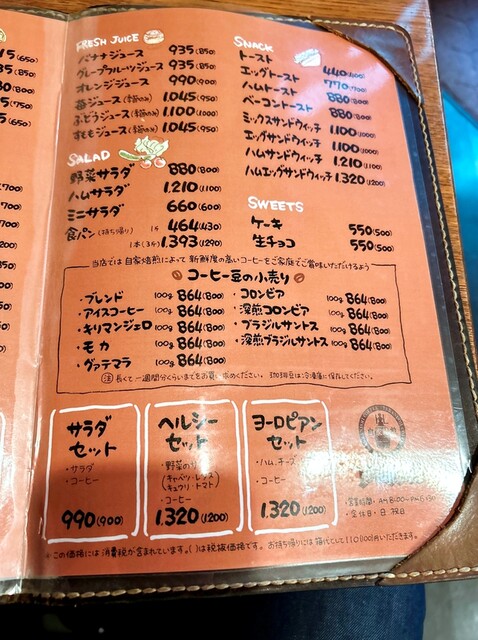 FRESH JUICE
バナナジュース 935(850)
グレープフルーツジュース 935(850)
オレンジジュース 990(900)
苺ジュース(季節のみ) 1.045(950)
ぶどうジュース(季節のみ) 1.100(1000)
すももジュース(季節のみ) 1.045(950)
SALAD
野菜サラダ 880(800)
ハムサラダ 1.210(1100)
ミニサラダ 660(600)
食パン(持ち帰り) 1斤 464(430)
1本(3斤) 1.393(1290)
SNACK
トースト 440(400)
エッグトースト 770(700)
ハムトースト 880(800)
ベーコントースト 880(800)
ミックスサンドウィッチ 1.100(1000)
エッグサンドウィッチ 1.100(1000)
ハムサンドウィッチ 1.210(1100)
ハムエッグサンドウィッチ 1.320(1200)
SWEETS
ケーキ 550(500)
生チョコ 550(500)
当店では自家焙煎によって新鮮度の高いコーヒーをご家庭でご賞味いただけるよう
コーヒー豆の小売り
・ブレンド 100g 864(800)
・アイスコーヒー 100g 864(800)
・キリマンジェロ 100g 864(800)
・モカ 100g 864(800)
・グァテマラ 100g 864(800)
・コロンビア 100g 864(800)
・深煎コロンビア 100g 864(800)
・ブラジルサントス 100g 864(800)
・深煎ブラジルサントス 100g 864(800)
注 長くて一週間分くらいまでをお買い求めください。珈琲豆は冷凍庫に保存してください。
サラダ
セット
・サラダ
・コーヒー
990(900)
ヘルシー
セット
・野菜のり
(キャベツ・レタス
キュウリ・トマト)
・コーヒー
1.320(1200)
ヨーロピアン
セット
・ハム、チーズ
・コーヒー
1.320(1200)
・営業時間・AM8:00~PM6:30
・定休日・日.祝日
※この価格には消費税が含まれています。( )は税抜価格です。お持ち帰りには箱代として110(100)円いただきます。